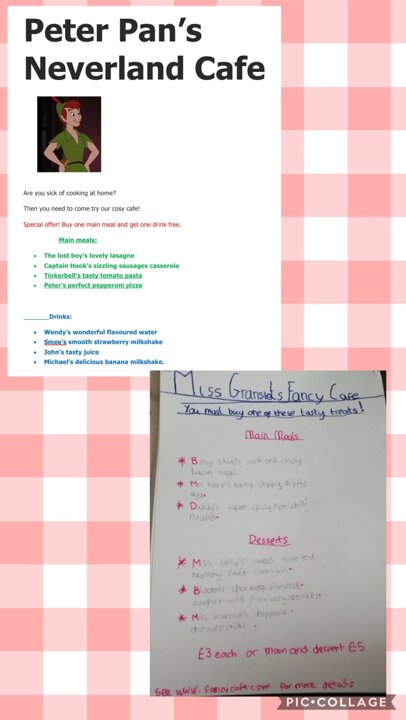 Peter Pan's
Neverland Cafe
Are you sick of cooking at home?
Then you need to come try our cosy cafe!
Special offer! Buy one main meal and get one drink free.
Main meals:
The lost boy's lovely lasagne
Captain Hook's sizzling sausages casserole
Tinkerbell's tasty tomato pasta
Peter's perfect pepperoni pizza
Drinks:
Wendy's wonderful flavoured water
Smee's smooth strawberry milkshake
John's tasty juice
Michael's delicious banana milkshake.
Miss Fancy Cafe
You must buy one of these tasty treats!
Main Meals
Baby and crispy
Bacon
tasty
Daddy's super spicy hot chilli
Desserts
Miss Sally's sweet
fruit
chocolate frosted
Miss
chocolate
£3 each or main and dessert £5
See www.fancycafe.com for more details
PIC•COLLAGE